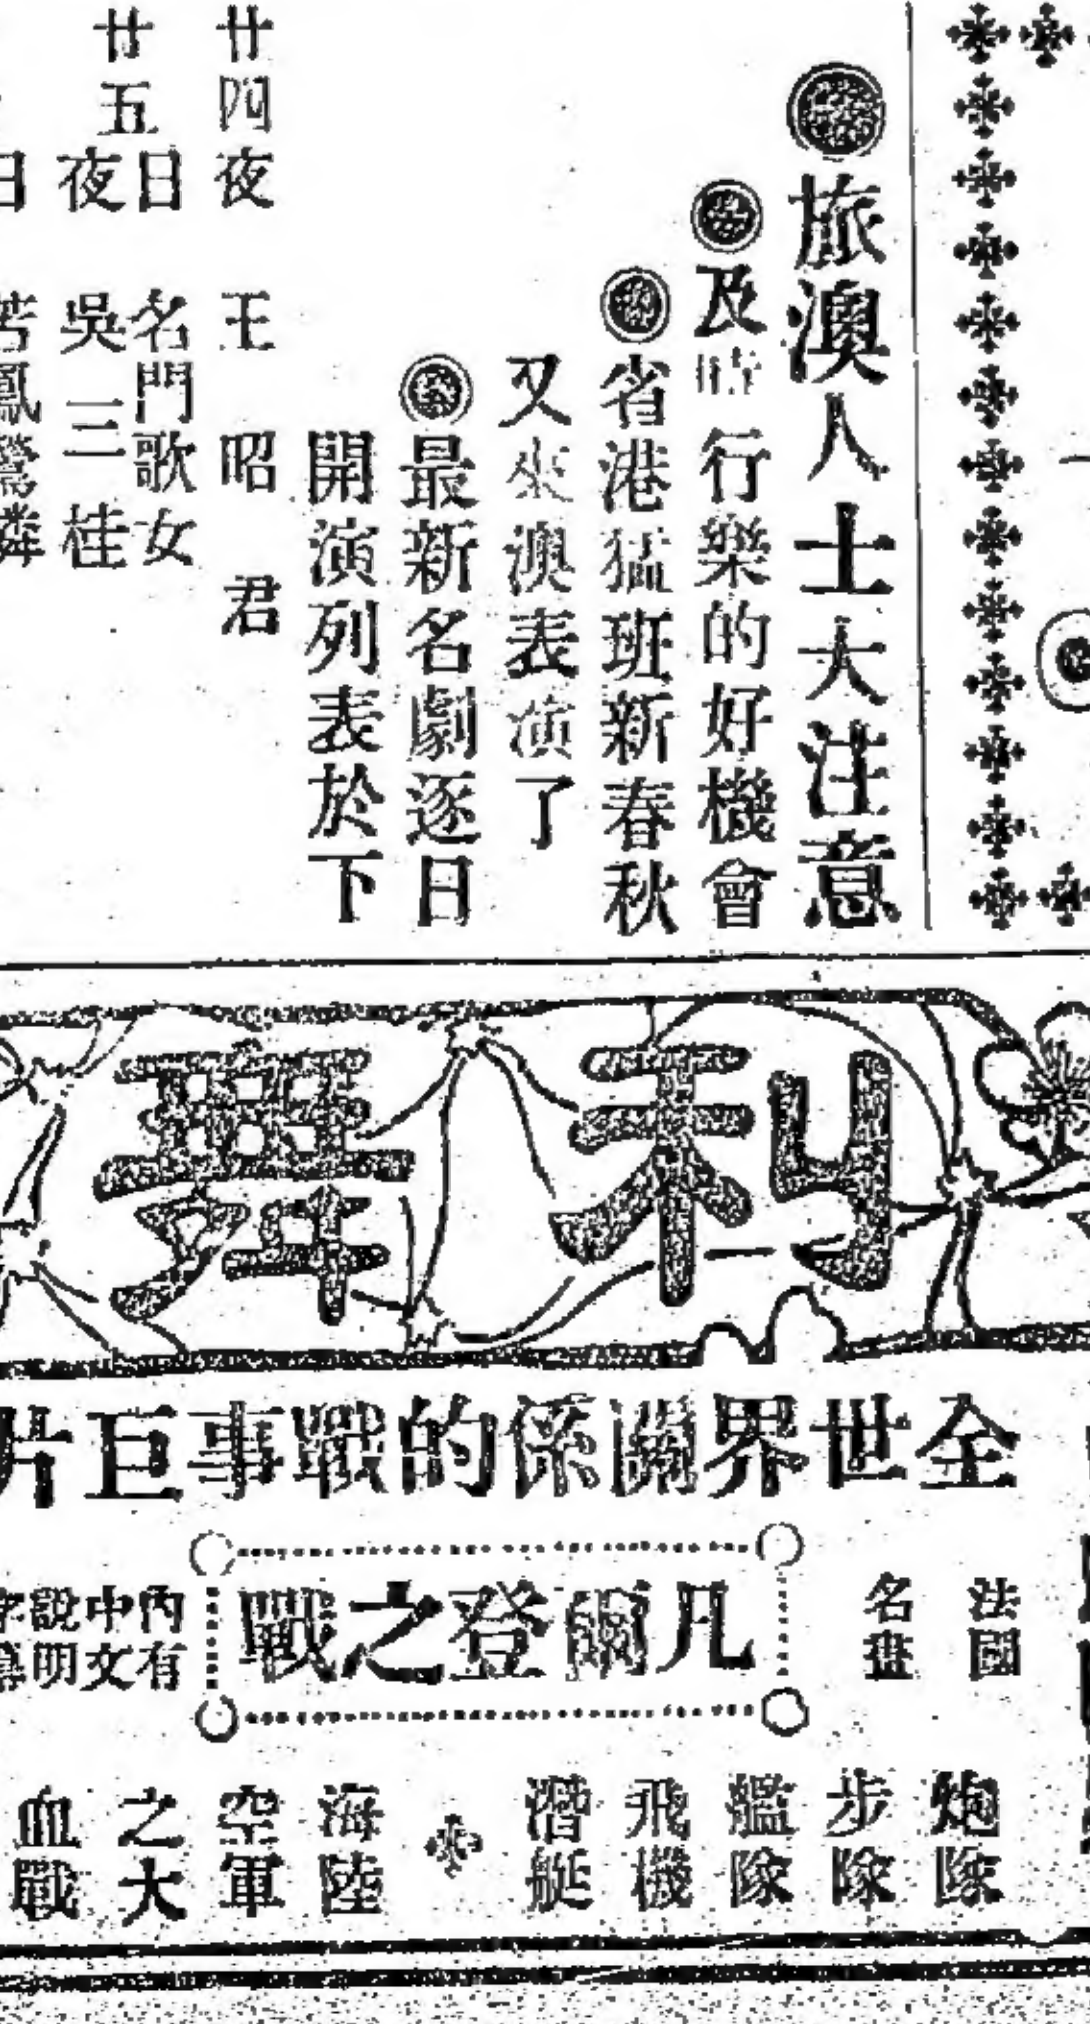 旅澳人士大注意
及時行樂的好機會
省港猛班新春秋
又來澳表演了
最新名劇逐日
開演列表於下
廿四夜 王昭君
廿五
日 名門歌女
夜 吳三桂
利舞
全世界關係的戰事巨片
法國
名畫
凡爾登之戰
內有
中文
說明
炮隊
步隊
艦隊
飛機
潛艇
海陸
空軍
之大
血戰